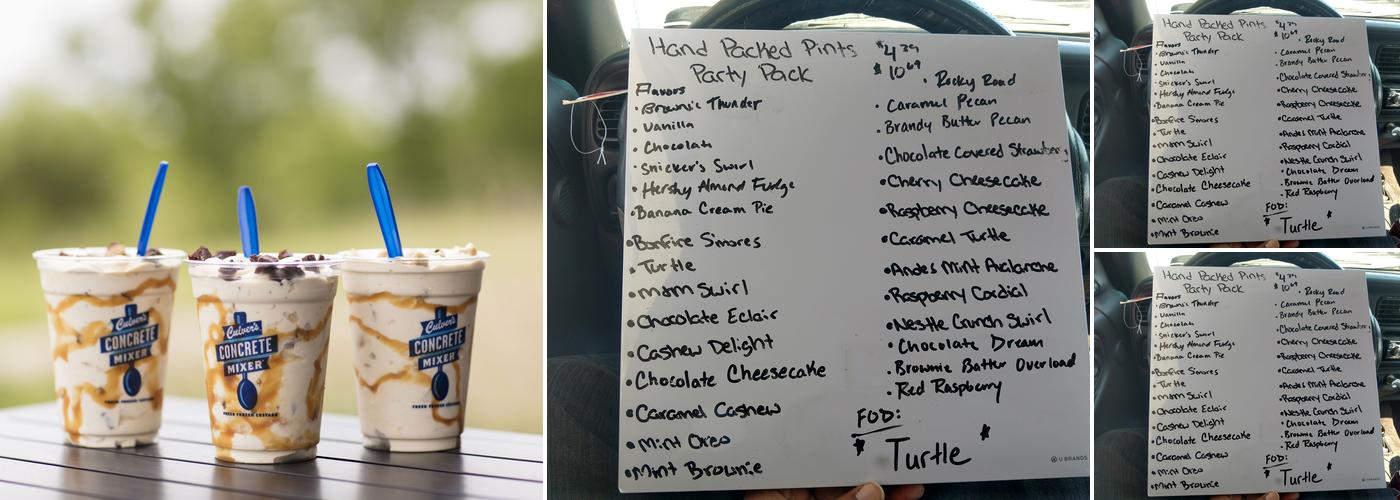 Culver's
CONCRETE
MIXER
FRESH FROZEN CUSTARD
Culver's
CONCRETE
MIXER
FRESH FROZEN CUSTARD
Culver's
CONCRETE
MIXER
FRESH FROZEN CUSTARD
Hand Packed Pints $4.39
Party Pack $10.69
Flavors
• Brownie Thunder
• Vanilla
• Chocolate
• Snicker's Swirl
• Hershy Almond Fudge
• Banana Cream Pie
• Bonfire S'mores
• Turtle
• m&m Swirl
• Chocolate Eclair
• Cashew Delight
• Chocolate Cheesecake
• Caramel Cashew
• Mint Oreo
• Mint Brownie
• Rocky Road
• Caramel Pecan
• Brandy Butter Pecan
• Chocolate Covered Strawberry
• Cherry Cheesecake
• Raspberry Cheesecake
• Caramel Turtle
• Andes Mint Avalanche
• Raspberry Cordial
• Nestle Crunch Swirl
• Chocolate Dream
• Brownie Batter Overload
• Red Raspberry
FOD:
* Turtle *
U BRANDS
Hand Packed Pints $4.39
Party Pack $10.69
Flavors
• Brownie Thunder
• Vanilla
• Chocolate
• Snicker's Swirl
• Hershy Almond Fudge
• Banana Cream Pie
• Bonfire S'mores
• Turtle
• m&m Swirl
• Chocolate Eclair
• Cashew Delight
• Chocolate Cheesecake
• Caramel Cashew
• Mint Oreo
• Mint Brownie
• Rocky Road
• Caramel Pecan
• Brandy Butter Pecan
• Chocolate Covered Strawberry
• Cherry Cheesecake
• Raspberry Cheesecake
• Caramel Turtle
• Andes Mint Avalanche
• Raspberry Cordial
• Nestle Crunch Swirl
• Chocolate Dream
• Brownie Batter Overload
• Red Raspberry
FOD:
* Turtle *
Hand Packed Pints $4.39
Party Pack $10.69
Flavors
• Brownie Thunder
• Vanilla
• Chocolate
• Snicker's Swirl
• Hershy Almond Fudge
• Banana Cream Pie
• Bonfire S'mores
• Turtle
• m&m Swirl
• Chocolate Eclair
• Cashew Delight
• Chocolate Cheesecake
• Caramel Cashew
• Mint Oreo
• Mint Brownie
• Rocky Road
• Caramel Pecan
• Brandy Butter Pecan
• Chocolate Covered Strawberry
• Cherry Cheesecake
• Raspberry Cheesecake
• Caramel Turtle
• Andes Mint Avalanche
• Raspberry Cordial
• Nestle Crunch Swirl
• Chocolate Dream
• Brownie Batter Overload
• Red Raspberry
FOD:
* Turtle *